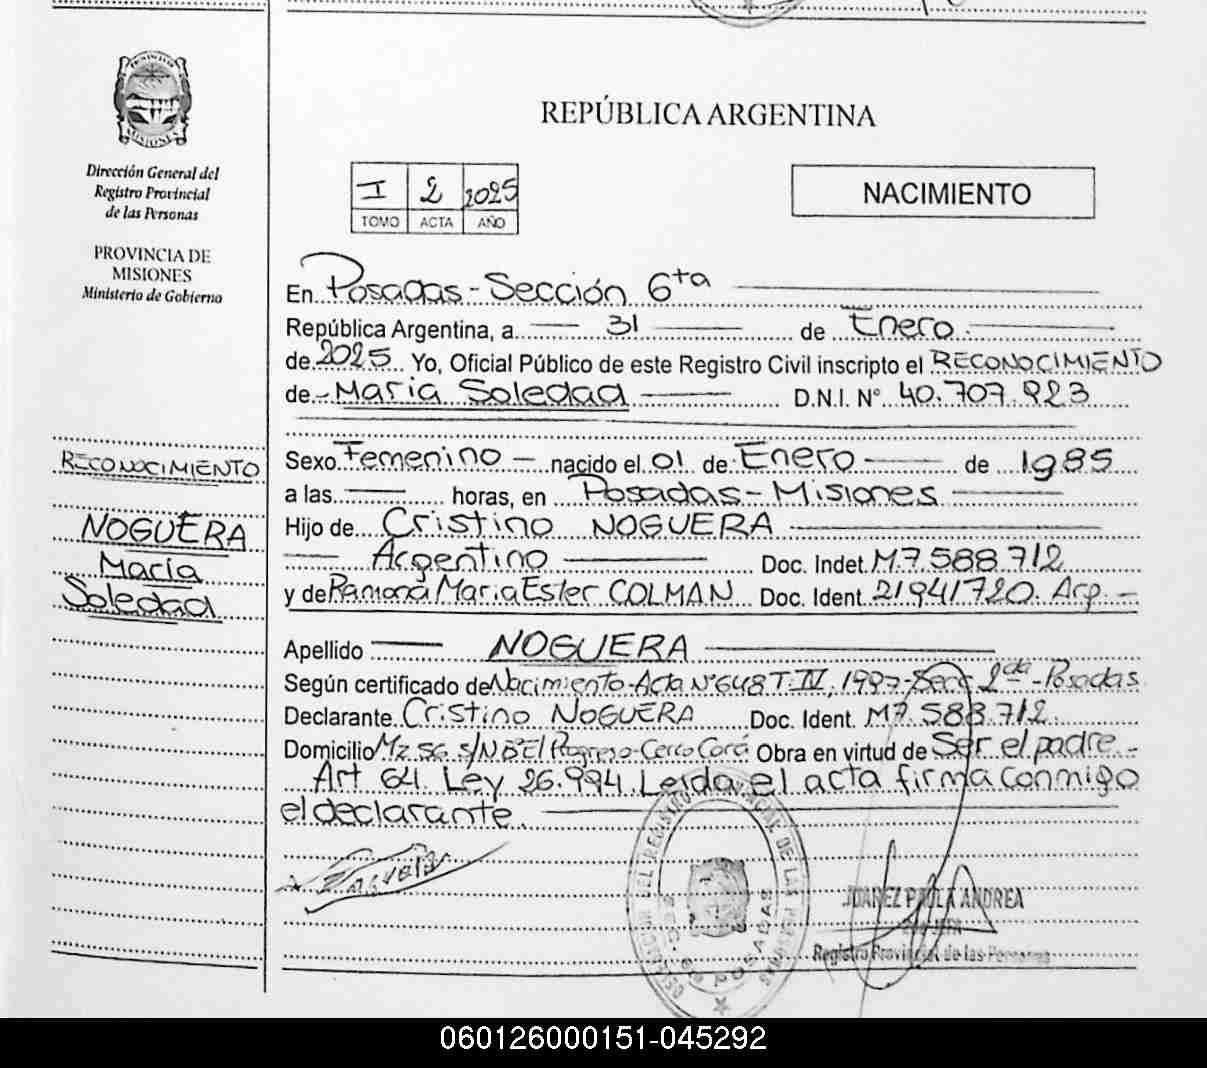 PROVINCIA DE
MISIONES
Dirección General del
Registro Provincial
de las Personas
PROVINCIA DE
MISIONES
Ministerio de Gobierno
REPÚBLICA ARGENTINA
I 2 2025
TOMO ACTA AÑO
NACIMIENTO
En Posadas - Sección 6ta
República Argentina, a 31 de Enero
de 2025 Yo, Oficial Público de este Registro Civil inscripto el RECONOCIMIENTO
de María Soledad D.N.I. N° 40.707.923
RECONOCIMIENTO
NOGUERA
María
Soledad
Sexo Femenino nacido el 01 de Enero de 1985
a las horas, en Posadas - Misiones
Hijo de Cristino NOGUERA
Argentino Doc. Indet. M7.588.712
y de Ramona Maria Ester COLMAN Doc. Ident. 21941720. Arg.
Apellido NOGUERA
Según certificado de Nacimiento - Acta N° 648 T. IV, 1997 - Secc 2da - Posadas
Declarante Cristino NOGUERA Doc. Ident. M7.588.712
Domicilio Mz 56 s/N B° El Progreso - Cerro Corá Obra en virtud de Ser el padre -
Art 64 Ley 26.994. Leída el acta firma conmigo
el declarante.
Noguera
JUAREZ PAOLA ANDREA
Registro Provincial de las Personas
POSADAS
060126000151-045292